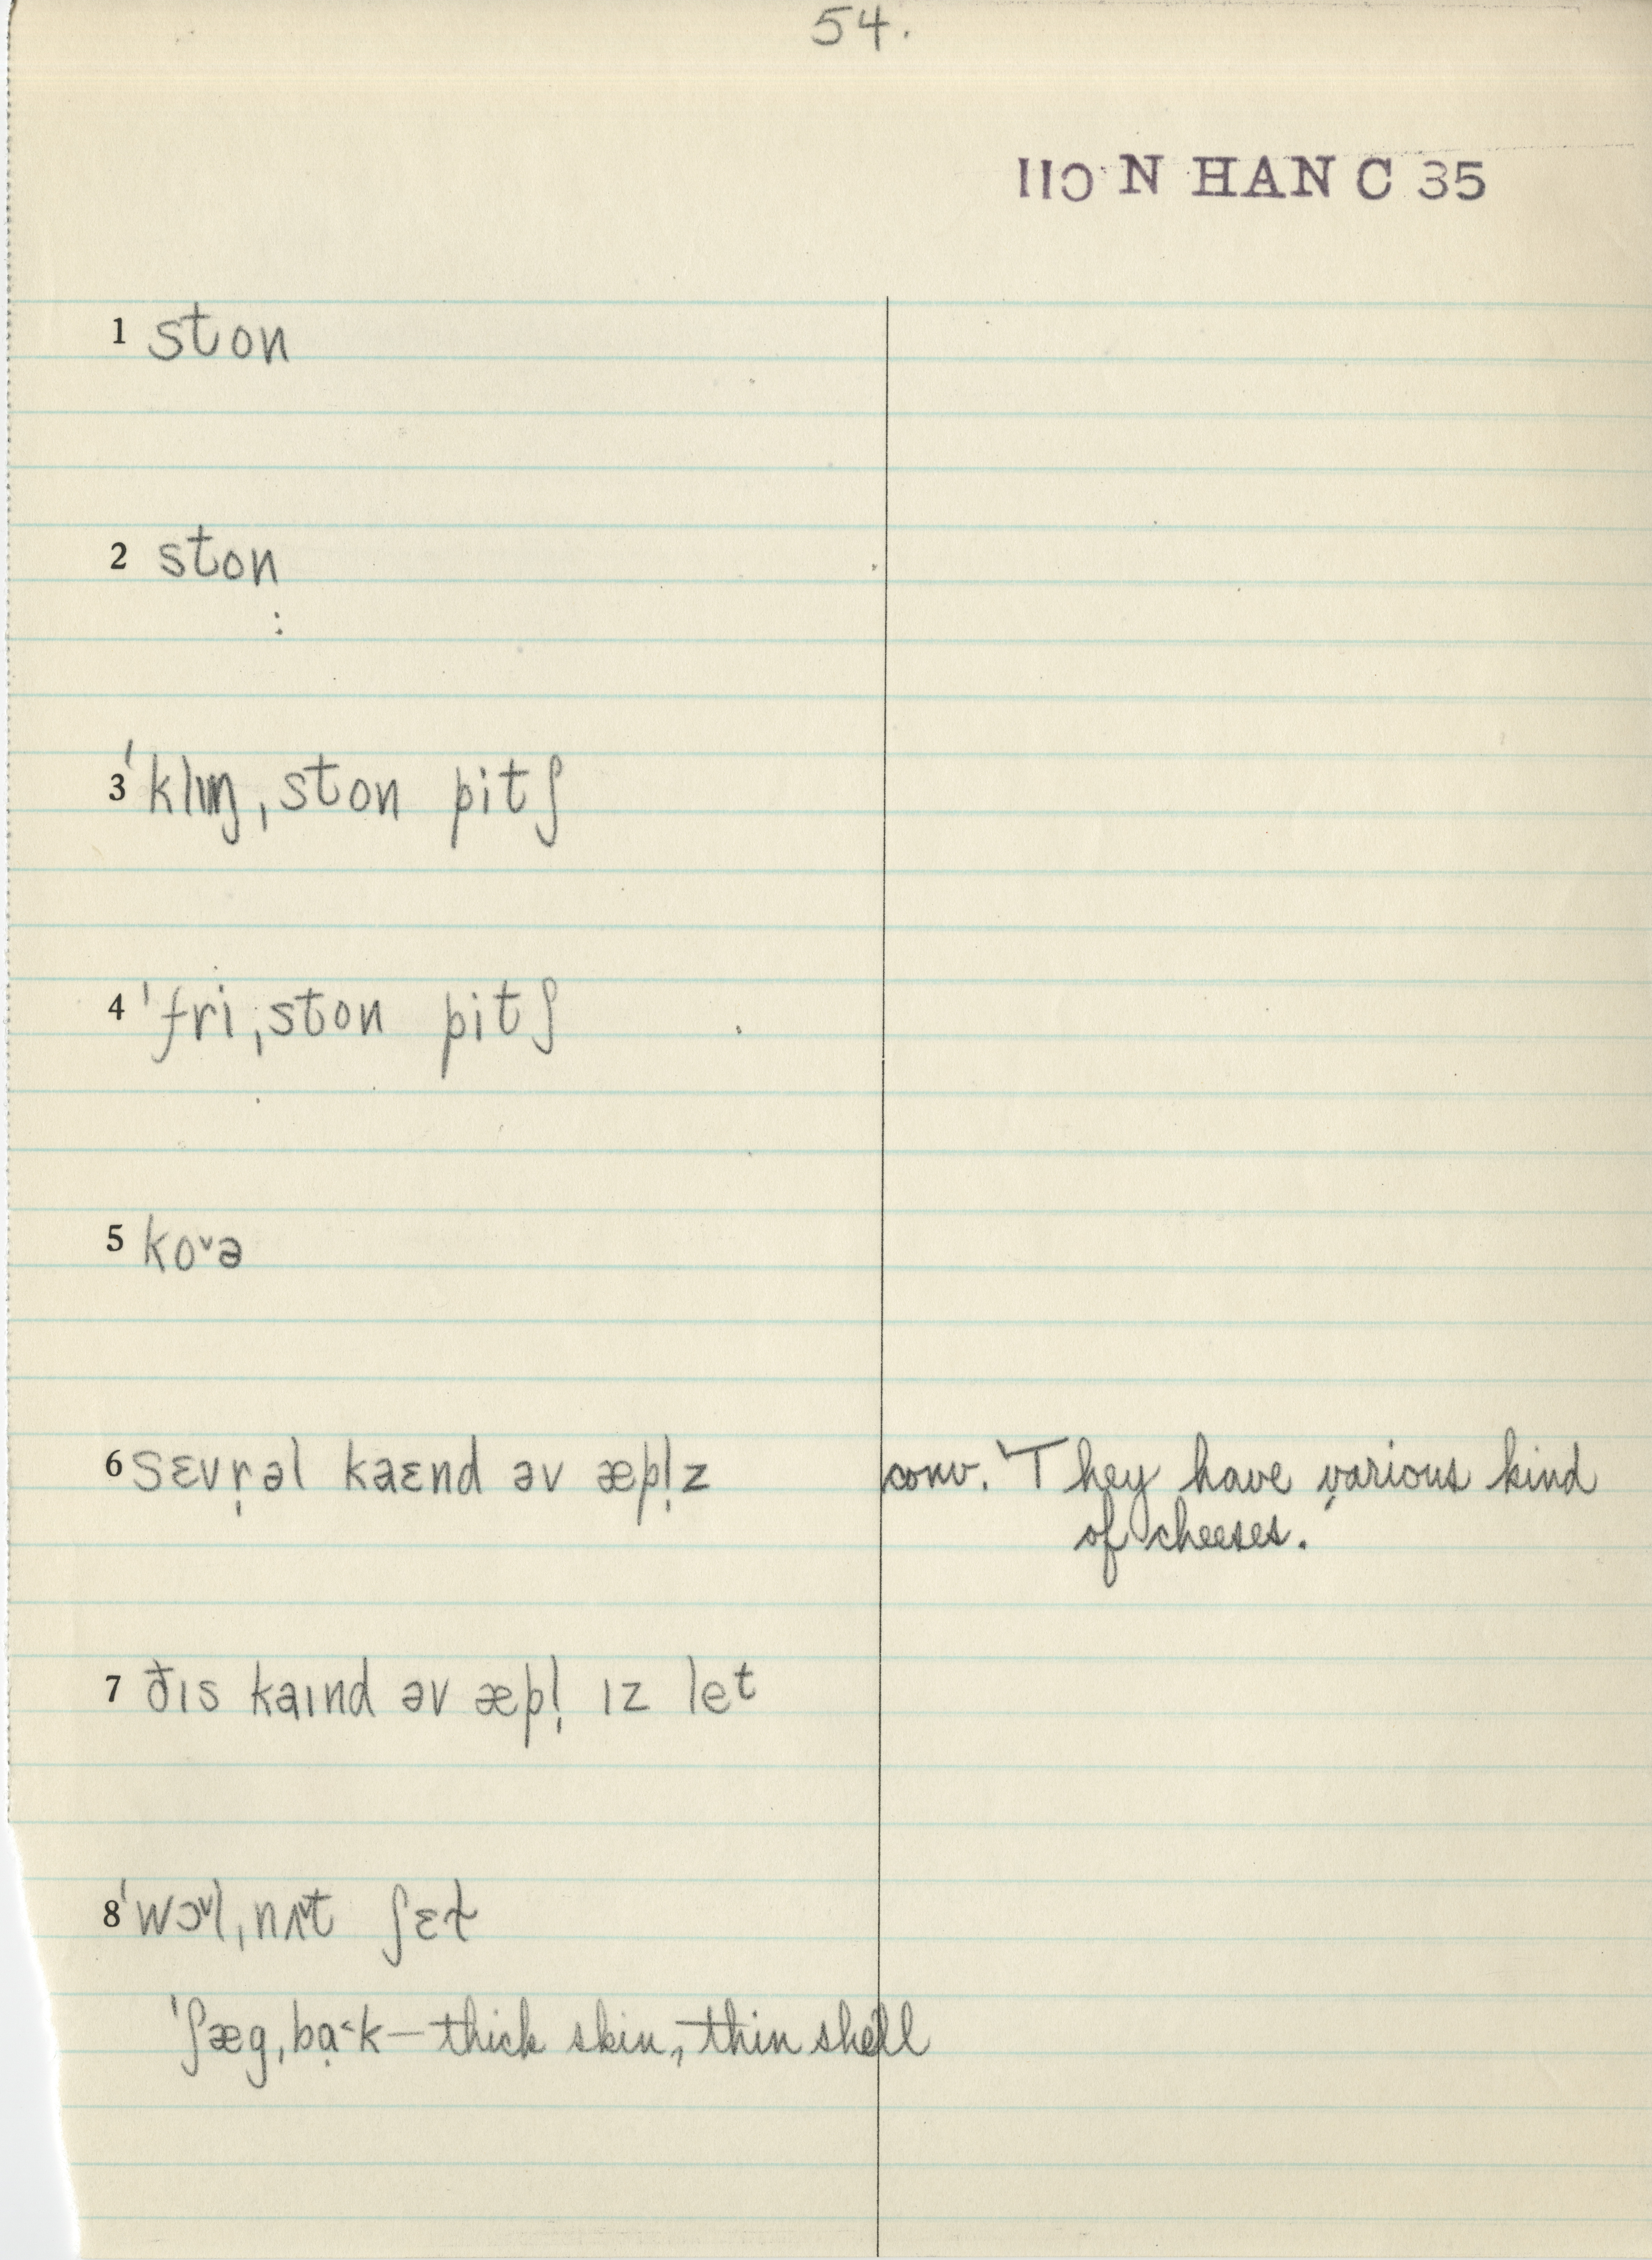 54.
IIƆ N HAN C 35
1 ston
2 ston
3 ˈklɪŋˌston pitʃ
4 ˈfriˌston pitʃ
5 ko˅ə
6 sɛvr̩əl kaɛnd əv æpl̩z
conv. "They have various kind
of cheeses."
7 ðɪs kaɪnd əv æpl̩ ɪz let
8 ˈwɔ˅lˌnʌ˅t ʃɛɫ
ˈʃægˌbạ˂k — thick skin, thin shell